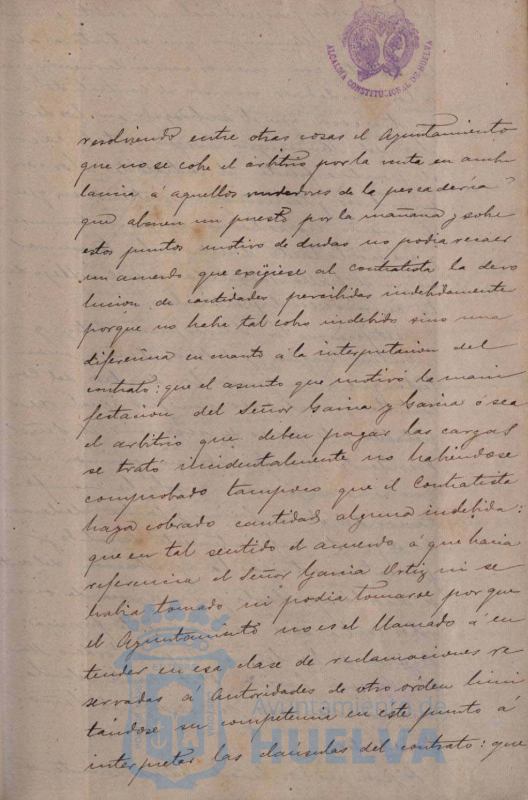 ALCALDIA CONSTITUCIONAL DE HUELVA
resolviendo entre otras cosas el Ayuntamiento
que no se cobre el arbitrio por la venta en ambu
lancia á aquellos vendedores de la pescadería
que abonen un puesto por la mañana y sobre
estos puntos motivo de dudas no podia recaer
un acuerdo que exigiese al contratista la devo
lucion de cantidades percibidas indebidamente
porque no hubo tal cobro indebido sino una
diferencia en cuanto á la interpretacion del
contrato: que el asunto que motivó la mani
festacion del Señor Garcia y Garcia ó sea
el arbitrio que deben pagar las cargas
se trató incidentalmente no habiéndose
comprobado tampoco que el Contratista
haya cobrado cantidad alguna indebida:
que en tal sentido el acuerdo á que hacia
referencia el Señor Garcia Ortiz ni se
habia tomado ni podia tomarse por que
el Ayuntamiento no es el llamado á en
tender en esa clase de reclamaciones re
servadas á Autoridades de otro órden limi
tándose su competencia en este punto á
interpretar las cláusulas del contrato: que
Ayuntamiento de
HUELVA